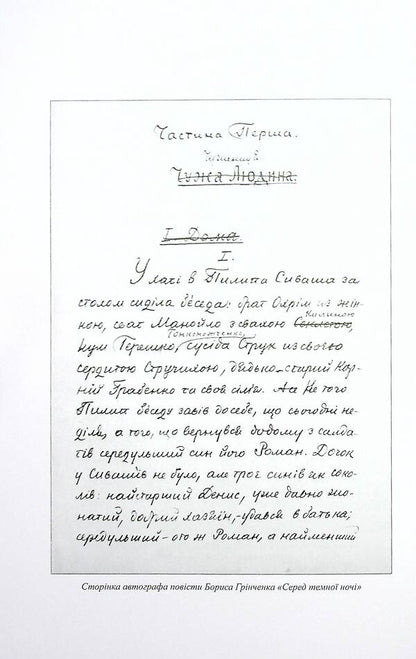 Частина Перша.
Чужа Людина.
I Дома.
I.
У хаті в Пилипа Сиваша за
столом сиділа бесіда: брат Охрім из жін-
Калиною
кою, сват Манойло з свахою
Тонконоженко,
кум Терешко, сусіда Струк из своєю
сердитою Стручихою, дядько старий Кор-
ній Грабенко та своя сімʼя. А не того
Пилип бесіду завів до себе, що сьогодні не-
діля, а того, що вернувся додому з салда-
тів середульший син його Роман. Дочок
у Сивашів не було, але троє синів як соко-
лів: найстарший Денис, уже давно жо-
натий, добрий хазяїн, – удався в батька;
середульший – ото ж Роман, а найменший
Сторінка автографа повісти Бориса Грінченка «Серед темної ночі»